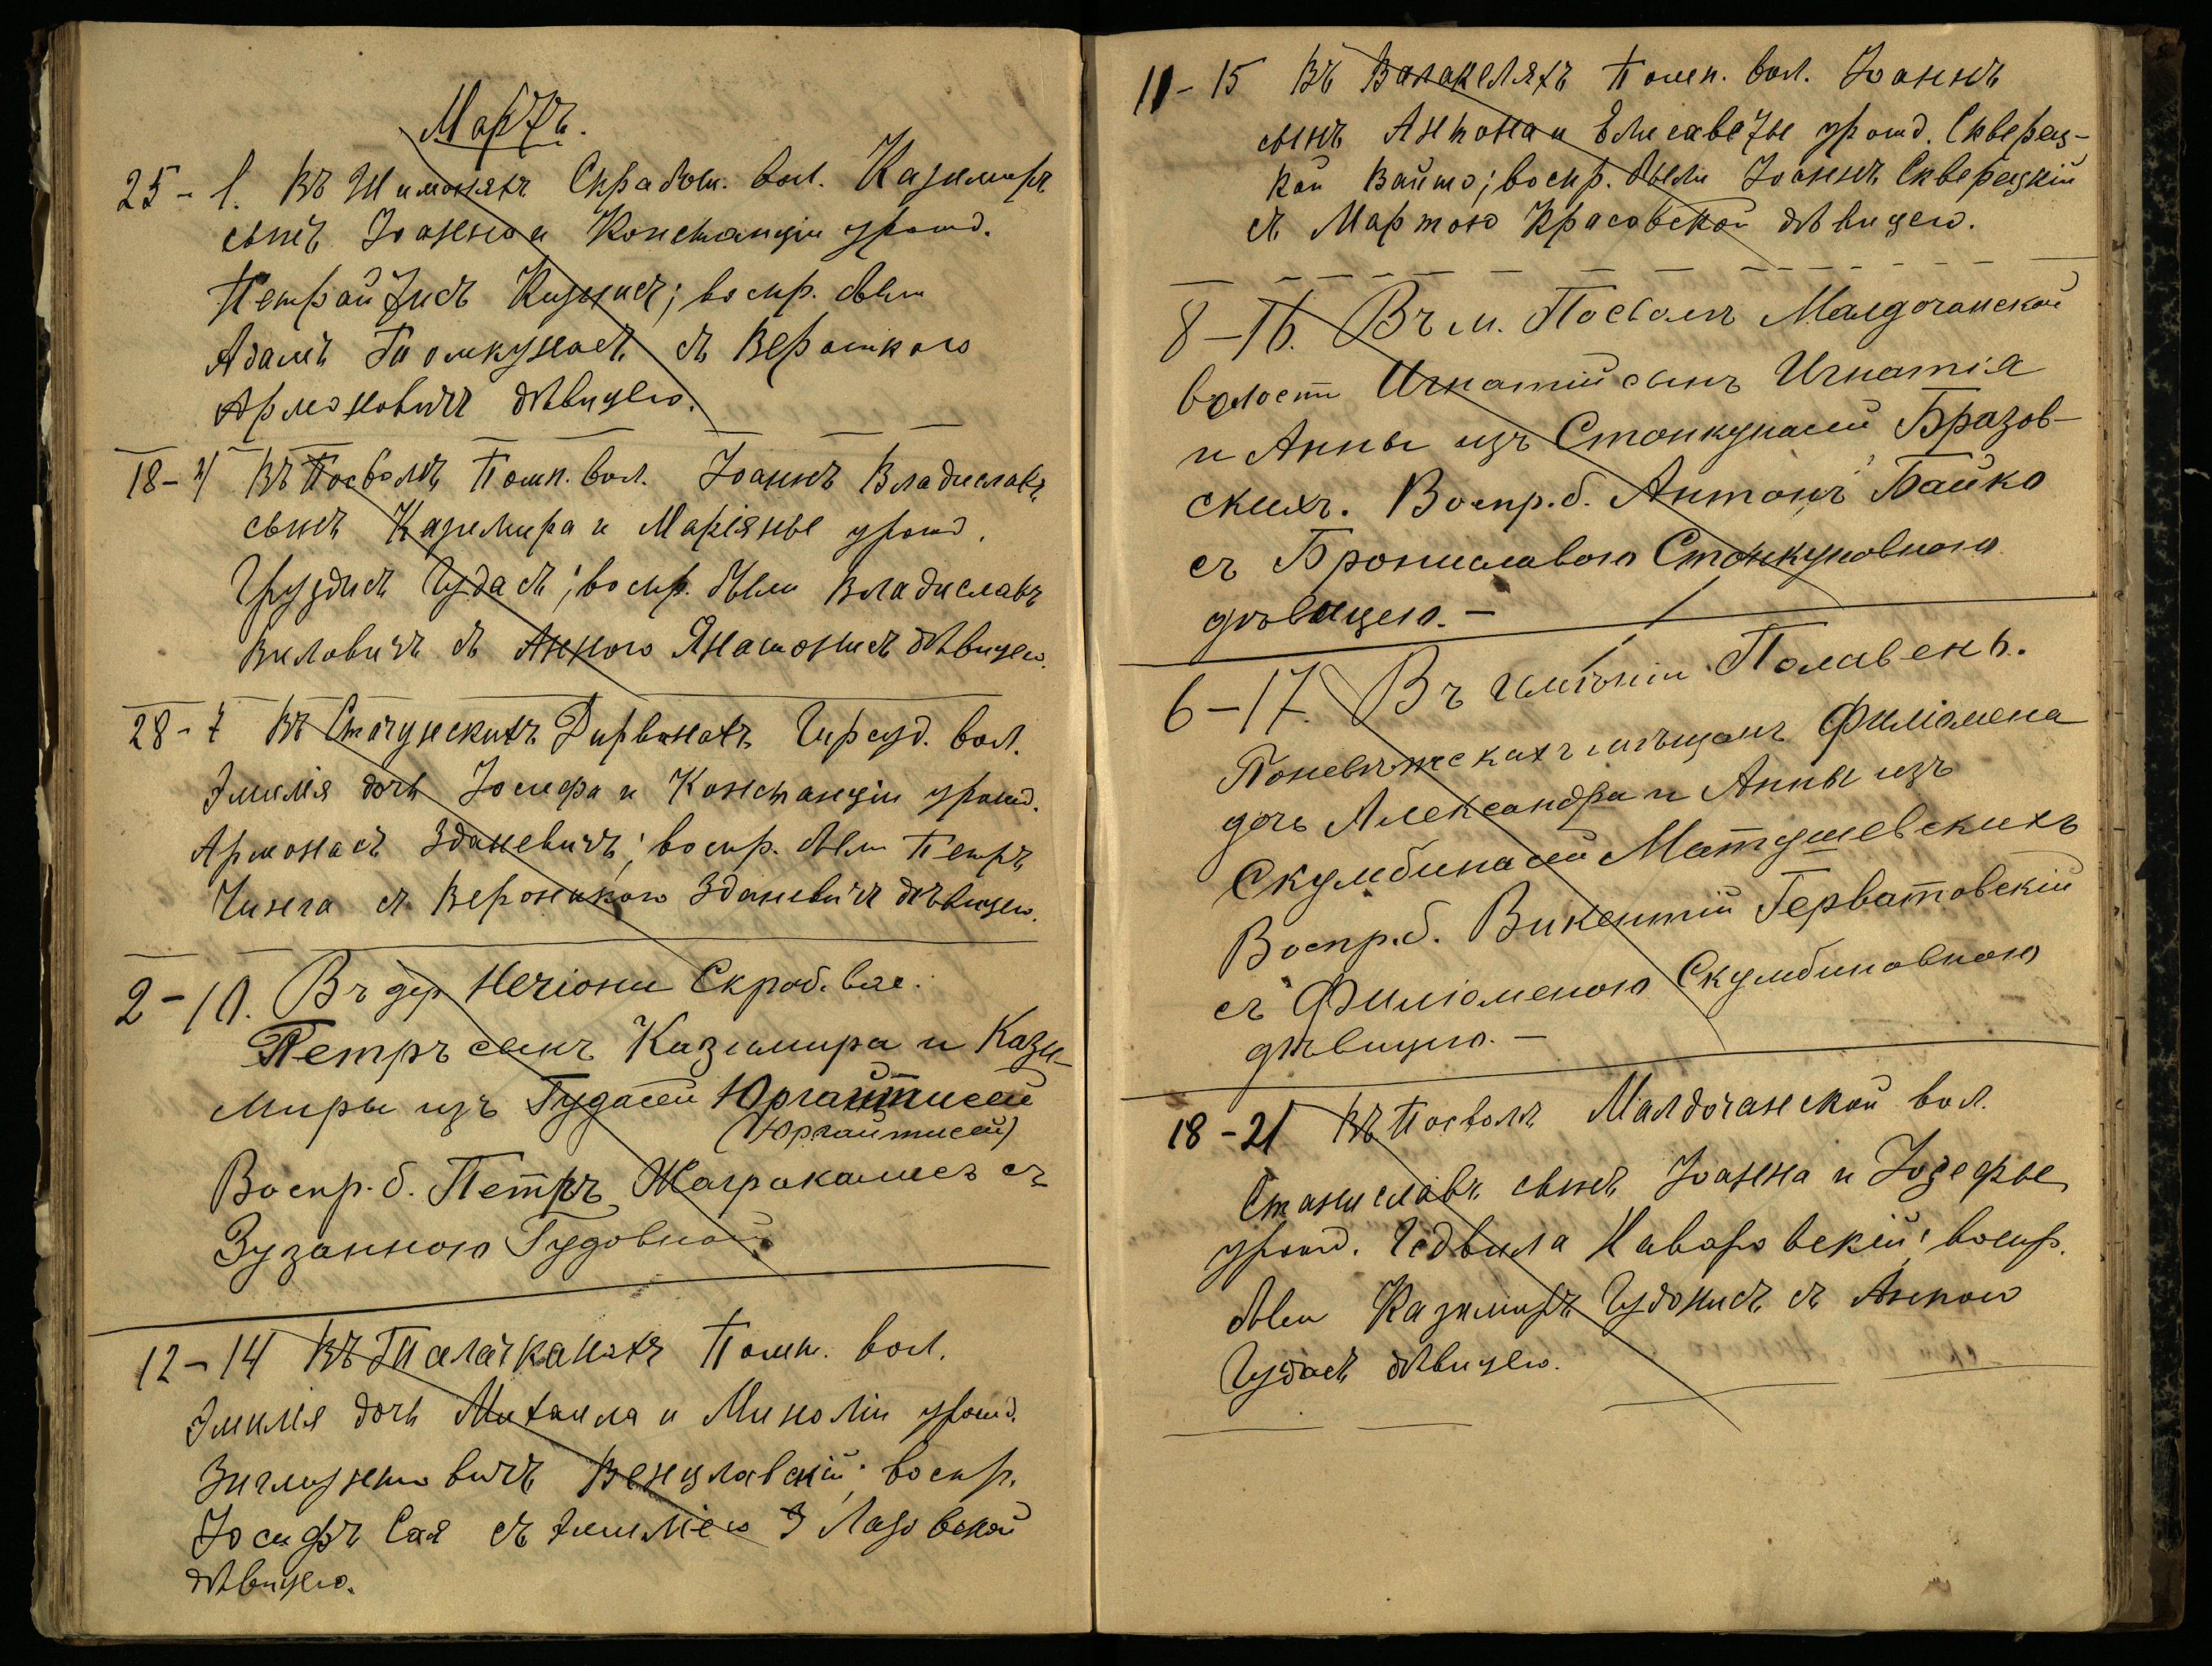 Мартъ.
25 – 1. Въ Шимоняхъ Скработ. вол. Казимиръ
сынъ Іоанна и Констанціи урожд.
Петрайтисъ Кизысъ; воспр. были
Адамъ Томкунасъ съ Вероникою
Армоновичъ дѣвицею.
18 – 4 Въ Посволѣ Помп. вол. Іоаннъ Владиславъ
сынъ Казимира и Маріянны урожд.
Груздисъ Гудасъ; воспр. были Владиславъ
Виловичъ съ Анною Яхатонисъ дѣвицею.
28 – 7 Въ Стачунскихъ Дирвонахъ Гирсуд. вол.
Эмилія дочь Іосифа и Констанціи урожд.
Армонасъ Зданевичъ; воспр. были Петръ
Чинга съ Вероникою Зданевичъ дѣвицею.
2 – 10. Въ дер Нечіони Скроб. вол.
Петръ сынъ Казимира и Кази-
миры изъ Гудасей Юргайтисей
(Юргайтисей)
Воспр. б. Петръ Жагракалисъ съ
Зузанною Гудовной
12 – 14 Въ Талачканяхъ Помп. вол.
Эмилія дочь Михаила и Михолины урожд.
Зигмунтовичъ Венцлавскій; воспр.
Іосифъ Сая съ Эмиліею Э Лазовской
дѣвицею.
11 – 15 Въ Валакеляхъ Помп. вол. Іоаннъ
сынъ Антона и Елисаветы урожд. Скверец-
кой Вайто; воспр. были Іоаннъ Скверецкій
съ Мартою Красовской дѣвицею.
8 – 16. Въ м. Посволъ Малдочанской
волости Игнатій сынъ Игнатія
и Анны изъ Стонкунасей Бразов-
скихъ. Воспр. б. Антонъ Байко
съ Брониславою Стонкуновною
дѣвицею. –
6 – 17. Въ имѣніи Полавенъ.
Поневѣжскихъ мѣщанъ Филіомена
дочь Александра и Анны изъ
Скумбинасей Матушевскихъ
Воспр. б. Викентій Герватовскій
съ Филіоменою Скумбиновною
дѣвицею. –
18 – 21 Въ Посволѣ Малдочанской вол.
Станиславъ сынъ Іоанна и Іозефы
урожд. Гедвила Наваровскій; воспр.
были Казимиръ Гудонисъ съ Анною
Гудасъ дѣвицею.